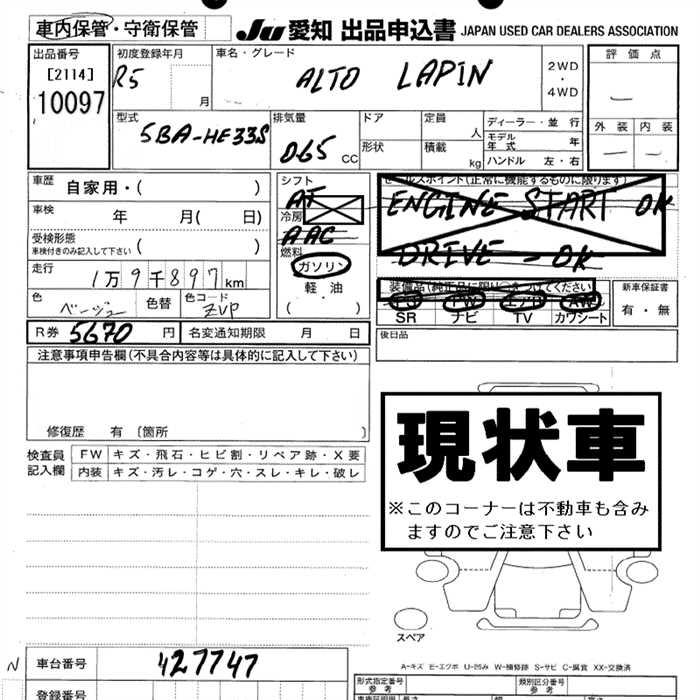 車内保管・守衛保管
JU 愛知 出品申込書 JAPAN USED CAR DEALERS ASSOCIATION
出品番号
[2114]
10097
初度登録年月
R5
月
車名・グレード
ALTO LAPIN
2WD
・
4WD
評価点
外装 内装
型式
5BA-HE33S
排気量
065 CC
ドア
形状
定員
人
積載
kg
ディーラー・並行
モデル
年式
年
ハンドル 左・右
車歴
自家用・( )
車検
年 月( 日)
受検形態
車検付きのみ記入して下さい ( )
走行
1万9千897km
色
ベージュ
色替
色コード
ZVP
R券 5670 円
名変通知期限 月 日
シフト
AT
冷房
AAC
燃料
ガソリン
・
軽・油
( )
セールスポイント(正常に機能するものに限ります)
ENGINE START OK
DRIVE - OK
装備品(純正品に限り
つけてください)
SR ナビ TV カワシート
新車保証書
有・無
後日品
注意事項申告欄(不具合内容等は具体的に記入して下さい)
修復歴 有 〔箇所 〕
検査員
記入欄
FW キズ・飛石・ヒビ割・リペア跡・X要
内装 キズ・汚レ・コゲ・穴・スレ・キレ・破レ
現状車
※このコーナーは不動車も含み
ますのでご注意下さい
スペア
A-キズ E-エクボ U-凹み W-補修跡 S-サビ C-腐食 XX-交換済
N
車台番号 427747
登録番号
形式指定番号
参考
類別区分番号
参考